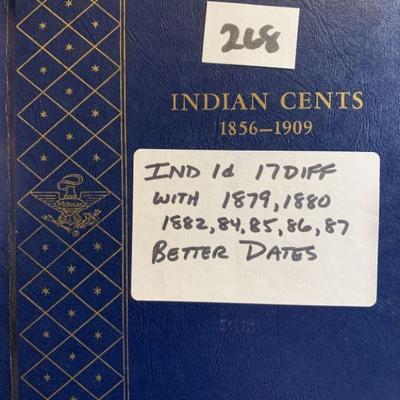 268
INDIAN CENTS
1856–1909
IND 1¢ 17 DIFF
WITH 1879, 1880
1882, 84, 85, 86, 87
BETTER DATES
Whitman